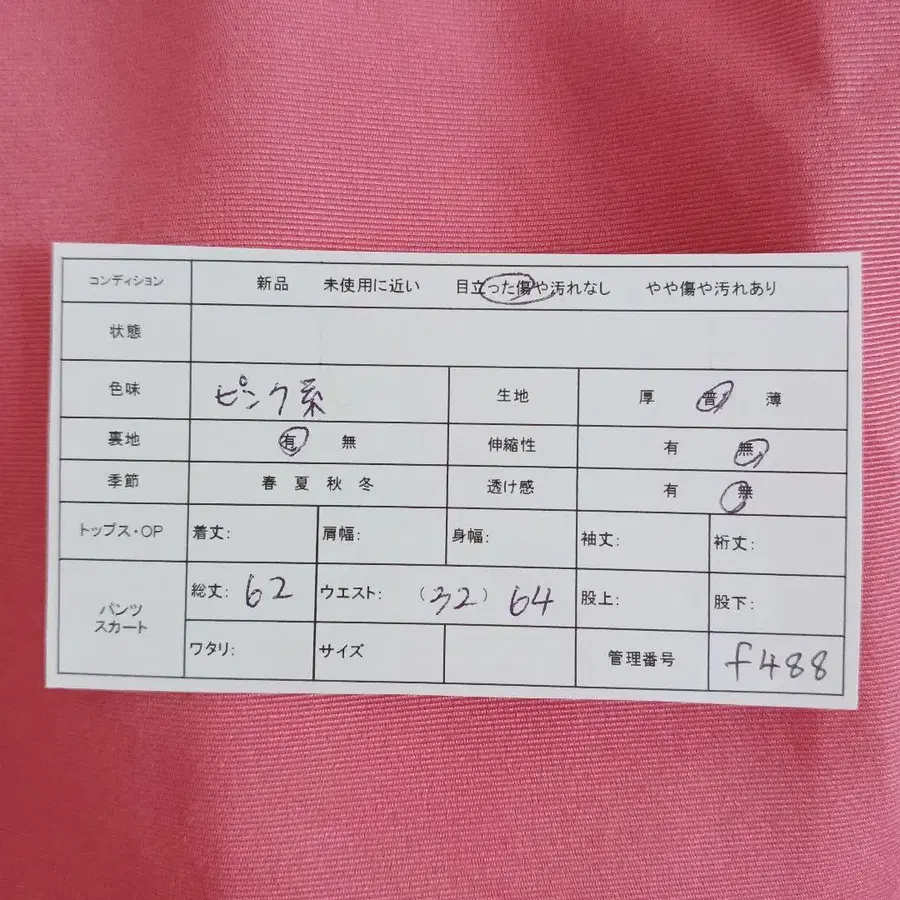 コンディション 新品 未使用に近い 目立った傷や汚れなし やや傷や汚れあり
状態
色味 ピンク系 生地 厚 普 薄
裏地 有 無 伸縮性 有 無
季節 春 夏 秋 冬 透け感 有 無
トップス・OP 着丈: 肩幅: 身幅: 袖丈: 裄丈:
パンツ
スカート
総丈: 62 ウエスト: (32) 64 股上: 股下:
ワタリ: サイズ 管理番号 f488